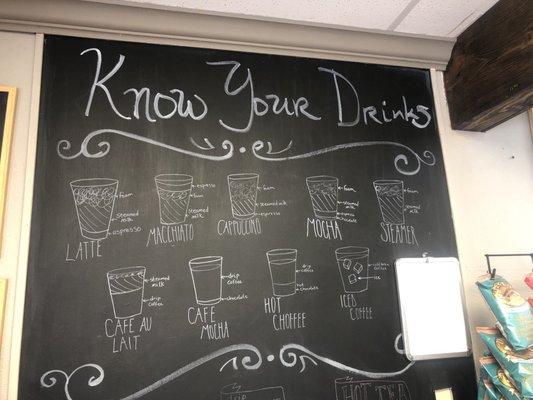 Know Your Drinks
foam
steamed milk
espresso
LATTE
espresso
foam
steamed milk
MACCHIATO
foam
steamed milk
espresso
CAPPUCCINO
foam
steamed milk
espresso
chocolate
MOCHA
foam
steamed milk
STEAMER
steamed milk
drip coffee
CAFE AU LAIT
drip coffee
chocolate
CAFE MOCHA
drip coffee
hot chocolate
HOT CHOFFEE
cold brew coffee
ice
ICED COFFEE
drip
HOT TEA